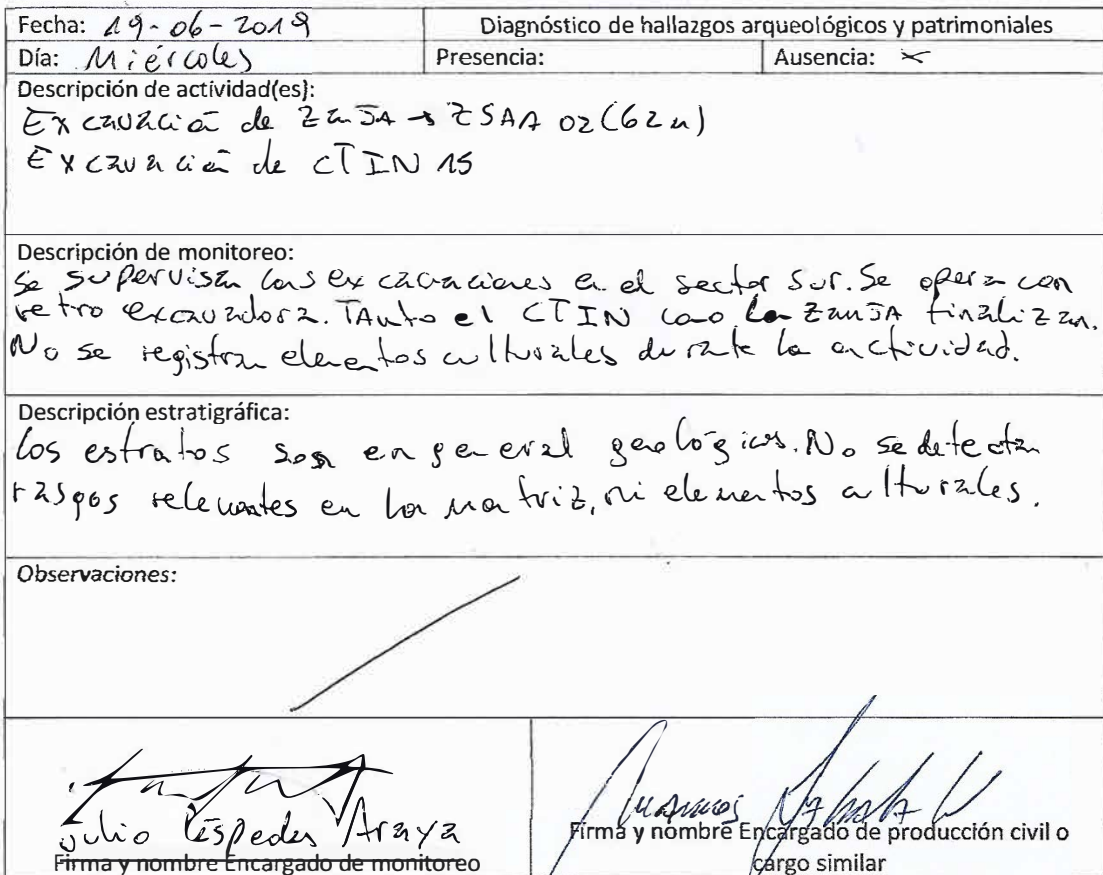 Fecha: 19-06-2019 Diagnóstico de hallazgos arqueológicos y patrimoniales
Día: Miércoles Presencia: Ausencia: x
Descripción de actividad(es):
Excavación de ZanJA → ZSAA 02 (62m)
Excavación de CTIN 15
Descripción de monitoreo:
Se supervisan las excavaciones en el sector Sur. Se opera con
retro excavadora. TAnto el CTIN como la ZanJA finalizan.
No se registran elementos culturales durante la actividad.
Descripción estratigráfica:
Los estratos son en general geológicos. No se detectan
rasgos relevantes en la matriz, ni elementos culturales.
Observaciones:
Julio Céspedes Araya
Firma y nombre Encargado de monitoreo
Firma y nombre Encargado de producción civil o
cargo similar